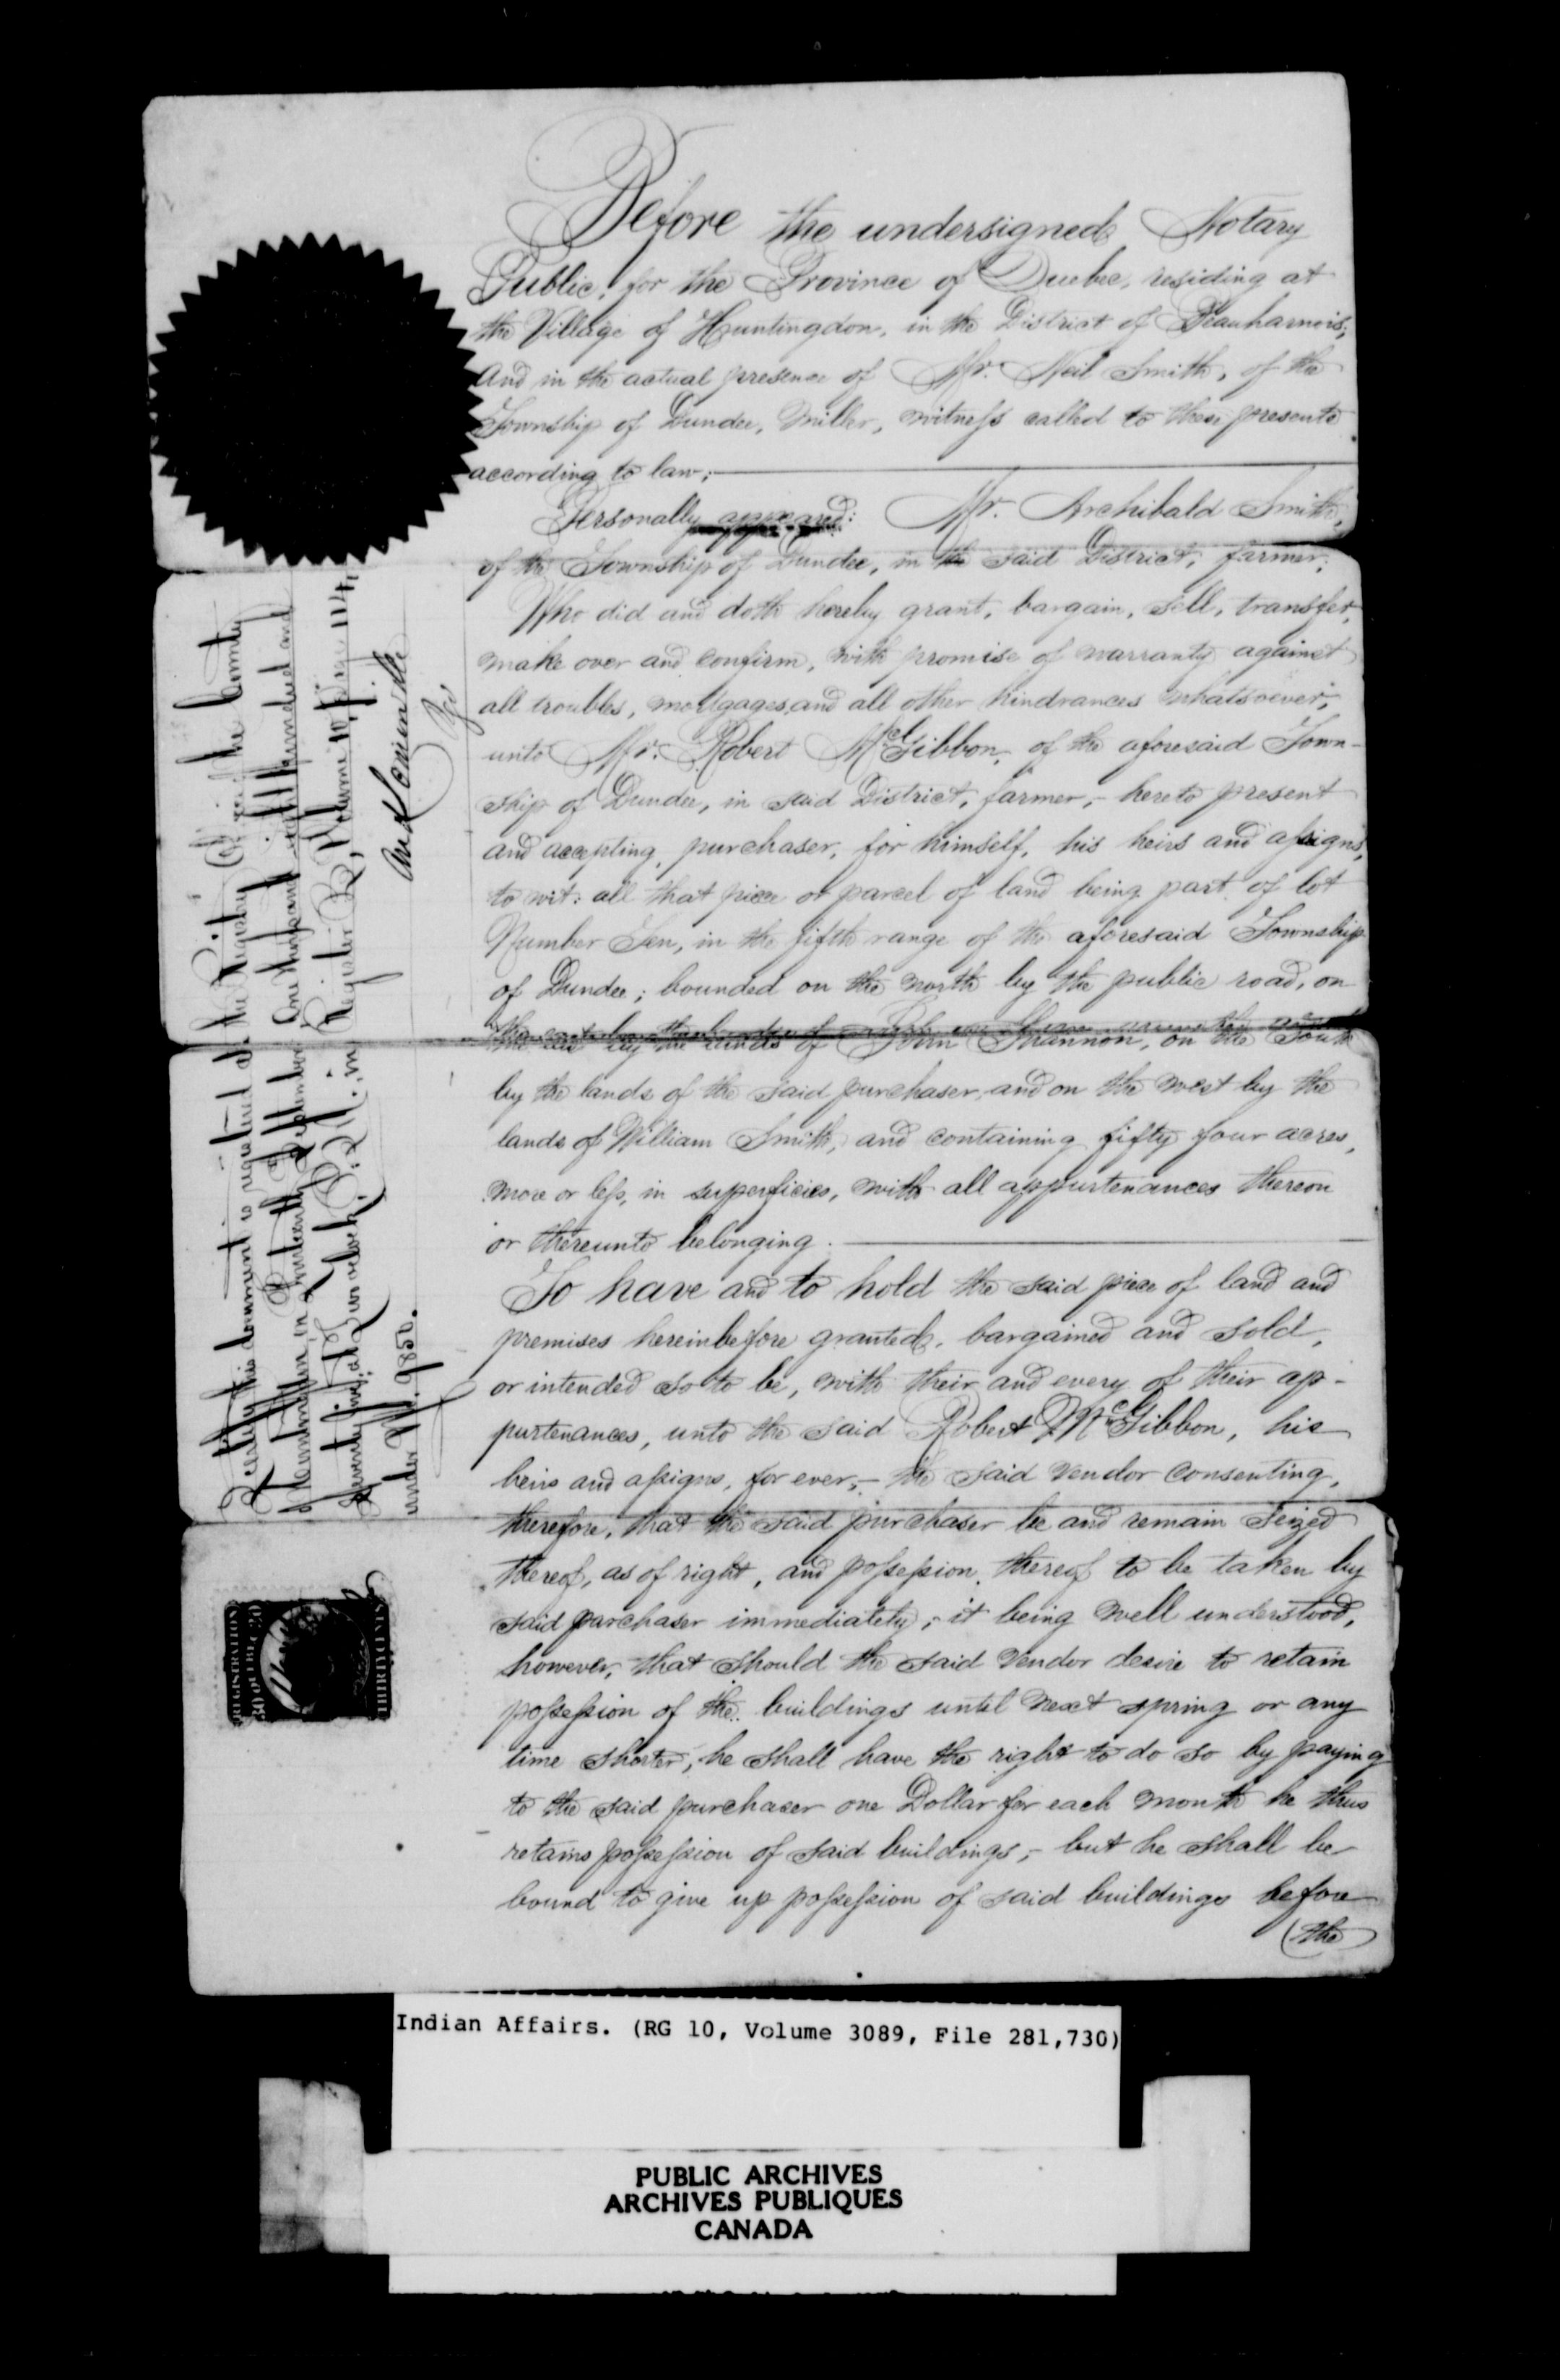 Before the undersigned Notary
Public, for the Province of Quebec, residing at
the Village of Huntingdon, in the District of Beauharnois;
And in the actual presence of Mr. Neil Smith, of the
Township of Dundee, Miller, witness called to these presents
according to law;
Personally appeared: Mr. Archibald Smith,
of the Township of Dundee, in the said District, farmer;
Who did and doth hereby grant, bargain, sell, transfer,
make over and confirm, with promise of warranty against
all troubles, mortgages, and all other hindrances whatsoever;
unto Mr. Robert McGibbon, of the aforesaid Town-
ship of Dundee, in said District, farmer, - hereto present
and accepting, purchaser, for himself, his heirs and assigns,
to wit: all that piece or parcel of land being part of lot
Number Ten, in the fifth range of the aforesaid Township
of Dundee; bounded on the north by the public road, on
the east by the lands of John Shannon, on the South
by the lands of the said purchaser, and on the west by the
lands of William Smith, and containing fifty four acres,
more or less, in superficies, with all appurtenances thereon
or thereunto belonging.
To have and to hold the said piece of land and
premises hereinbefore granted, bargained and sold,
or intended so to be, with their and every of their ap-
purtenances, unto the said Robert McGibbon, his
heirs and assigns, for ever; - the said Vendor consenting,
therefore, that the said purchaser be and remain seized
thereof, as of right, and possession thereof to be taken by
said purchaser immediately; - it being well understood,
however, that should the said Vendor desire to retain
possession of the buildings until next spring or any
time shorter, he shall have the right to do so by paying
to the said purchaser one Dollar for each month he thus
retains possession of said buildings, - but he shall be
bound to give up possession of said buildings before
(the
I certify this document is registered in the Registry Office of the County
of Huntingdon, in the
One thousand eight hundred and
Seventy five, at
Register B, Volume 10, Page 114
under No. 9850.
REGISTRATION
30 QUEBEC 30
THIRTY CENTS
Indian Affairs. (RG 10, Volume 3089, File 281,730)
PUBLIC ARCHIVES
ARCHIVES PUBLIQUES
CANADA